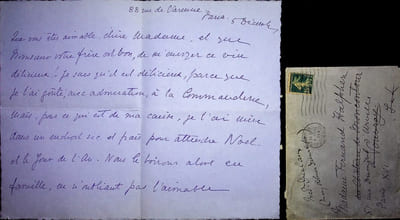 88 rue de Varenne
Paris. 5 Décembre
Que vous êtes aimable, chère Madame, et que
Monsieur votre frère est bon, de m'envoyer ce vin
délicieux. Je sais qu'il est délicieux, parce que
je l'ai goûté, avec admiration, à la Commanderie,
Mais, pour ce qui est de ma caisse, je l'ai mise
dans un endroit sec et frais pour attendre Noël
et le Jour de l'An. Nous le boirons alors en
famille, en n'oubliant pas l'aimable
Madame Fernand Halphen
Paris XVI